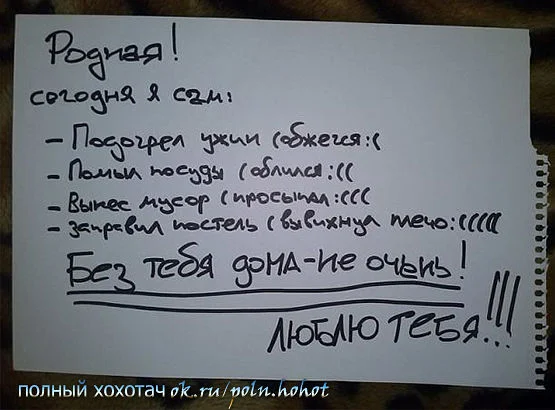 Родная!
сегодня я сам:
- Подогрел ужин (обжегся:(
- Помыл посуды (облился:((
- Вынес мусор (просыпал:(((
- заправил постель (вывихнул плечо:(((((
Без тебя дома-не очень!
ЛЮБЛЮ ТЕБЯ...!!!
полный хохотач ok.ru/poln.hohot